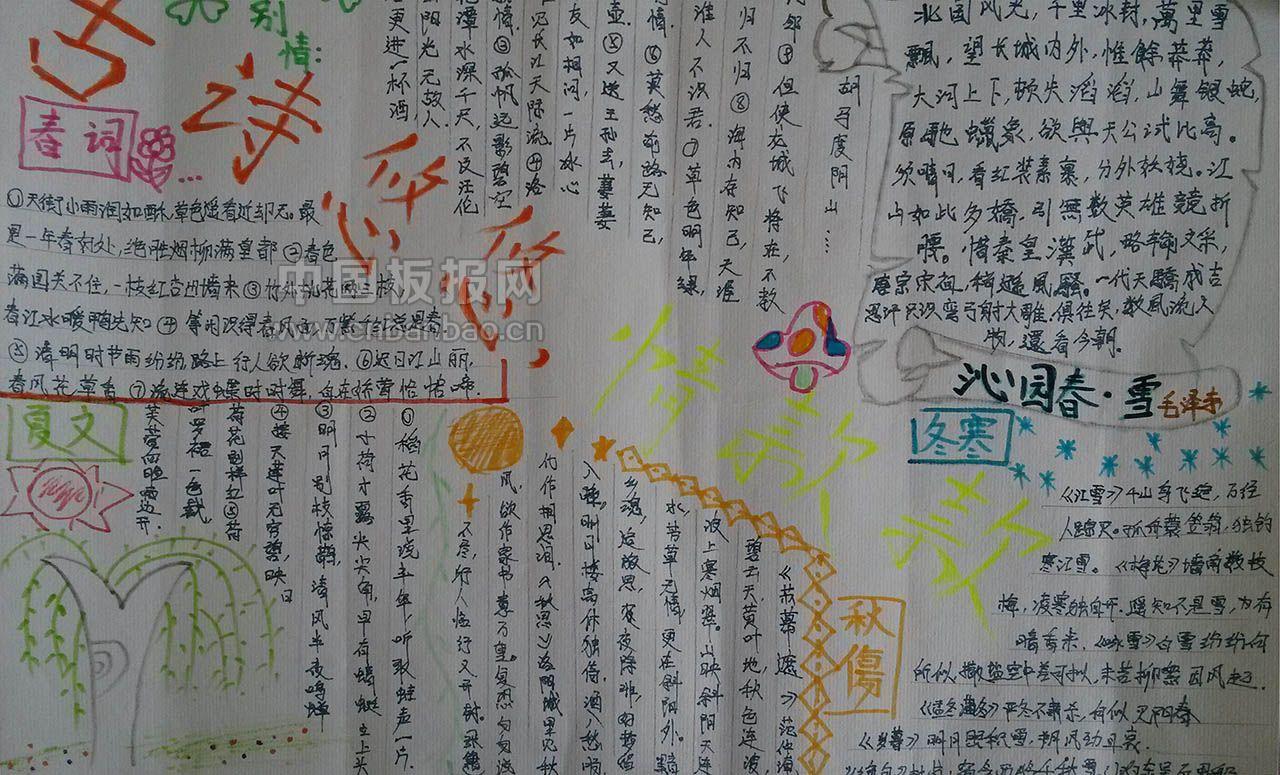 古诗
悠悠
情款款
别
情:
春词
①天街小雨润如酥,草色遥看近却无。最
是一年春好处,绝胜烟柳满皇都②春色
满园关不住,一枝红杏出墙来③竹外桃花两三枝
春江水暖鸭先知④等闲识得春风面,万紫千红总是春.
⑤清明时节雨纷纷,路上行人欲断魂。⑥迟日江山丽,
春风花草香⑦流连戏蝶时时舞,自在娇莺恰恰啼.
更进一杯酒,
阳光无故人
花潭水深千尺,不及汪伦
情③孤帆远影碧空
见长江天际流.④洛
友如相问,一片冰心
壶.⑤又送王孙去,萋萋
情⑥莫愁前路无知己,
谁人不识君.⑦草色明年绿,
归不归⑧海内存知己,天涯
邻⑨但使龙城飞将在,不教
胡马度阴山…
北国风光,千里冰封,萬里雪
飄,望长城内外,惟餘莽莽,
大河上下,顿失滔滔,山舞银蛇,
原馳蠟象,欲與天公试比高。
须晴日,看红装素裹,分外妖娆。江
山如此多嬌,引無數英雄競折
腰。惜秦皇漢武,略輸文采,
唐宗宋祖,稍遜風騷。一代天驕成吉
思汗只识彎弓射大雕,俱往矣,數風流人
物,還看今朝。
沁园春·雪毛泽东
中国板报网
www.cnbanbao.cn
夏文
①稻花香里说丰年,听取蛙声一片.
②小荷才露尖尖角,早有蜻蜓立上头
③明月别枝惊鹊,清风半夜鸣蝉
④接天莲叶无穷碧,映日
荷花别样红⑤荷
叶罗裙一色裁,
芙蓉向脸两边开.
秋傷
《苏幕遮》范仲淹
碧云天,黄叶地,秋色连波,
波上寒烟翠。山映斜阳天连
水,芳草无情,更在斜阳外。黯
乡魂,追旅思,夜夜除非,好梦留
人睡。明月楼高休独倚,酒入愁肠
化作相思泪.《秋思》洛阳城里见秋
风,欲作家书意万重。复恐匆匆说
不尽,行人临行又开封。
冬寒
《江雪》千山鸟飞绝,万径
人踪灭。孤舟蓑笠翁,独钓
寒江雪。《梅花》墙角数枝
梅,凌寒独自开.遥知不是雪,为有
暗香来.《咏雪》白雪纷纷何
所似,撒盐空中差可拟,未若柳絮因风起.
明月照积雪,朔风劲且哀.